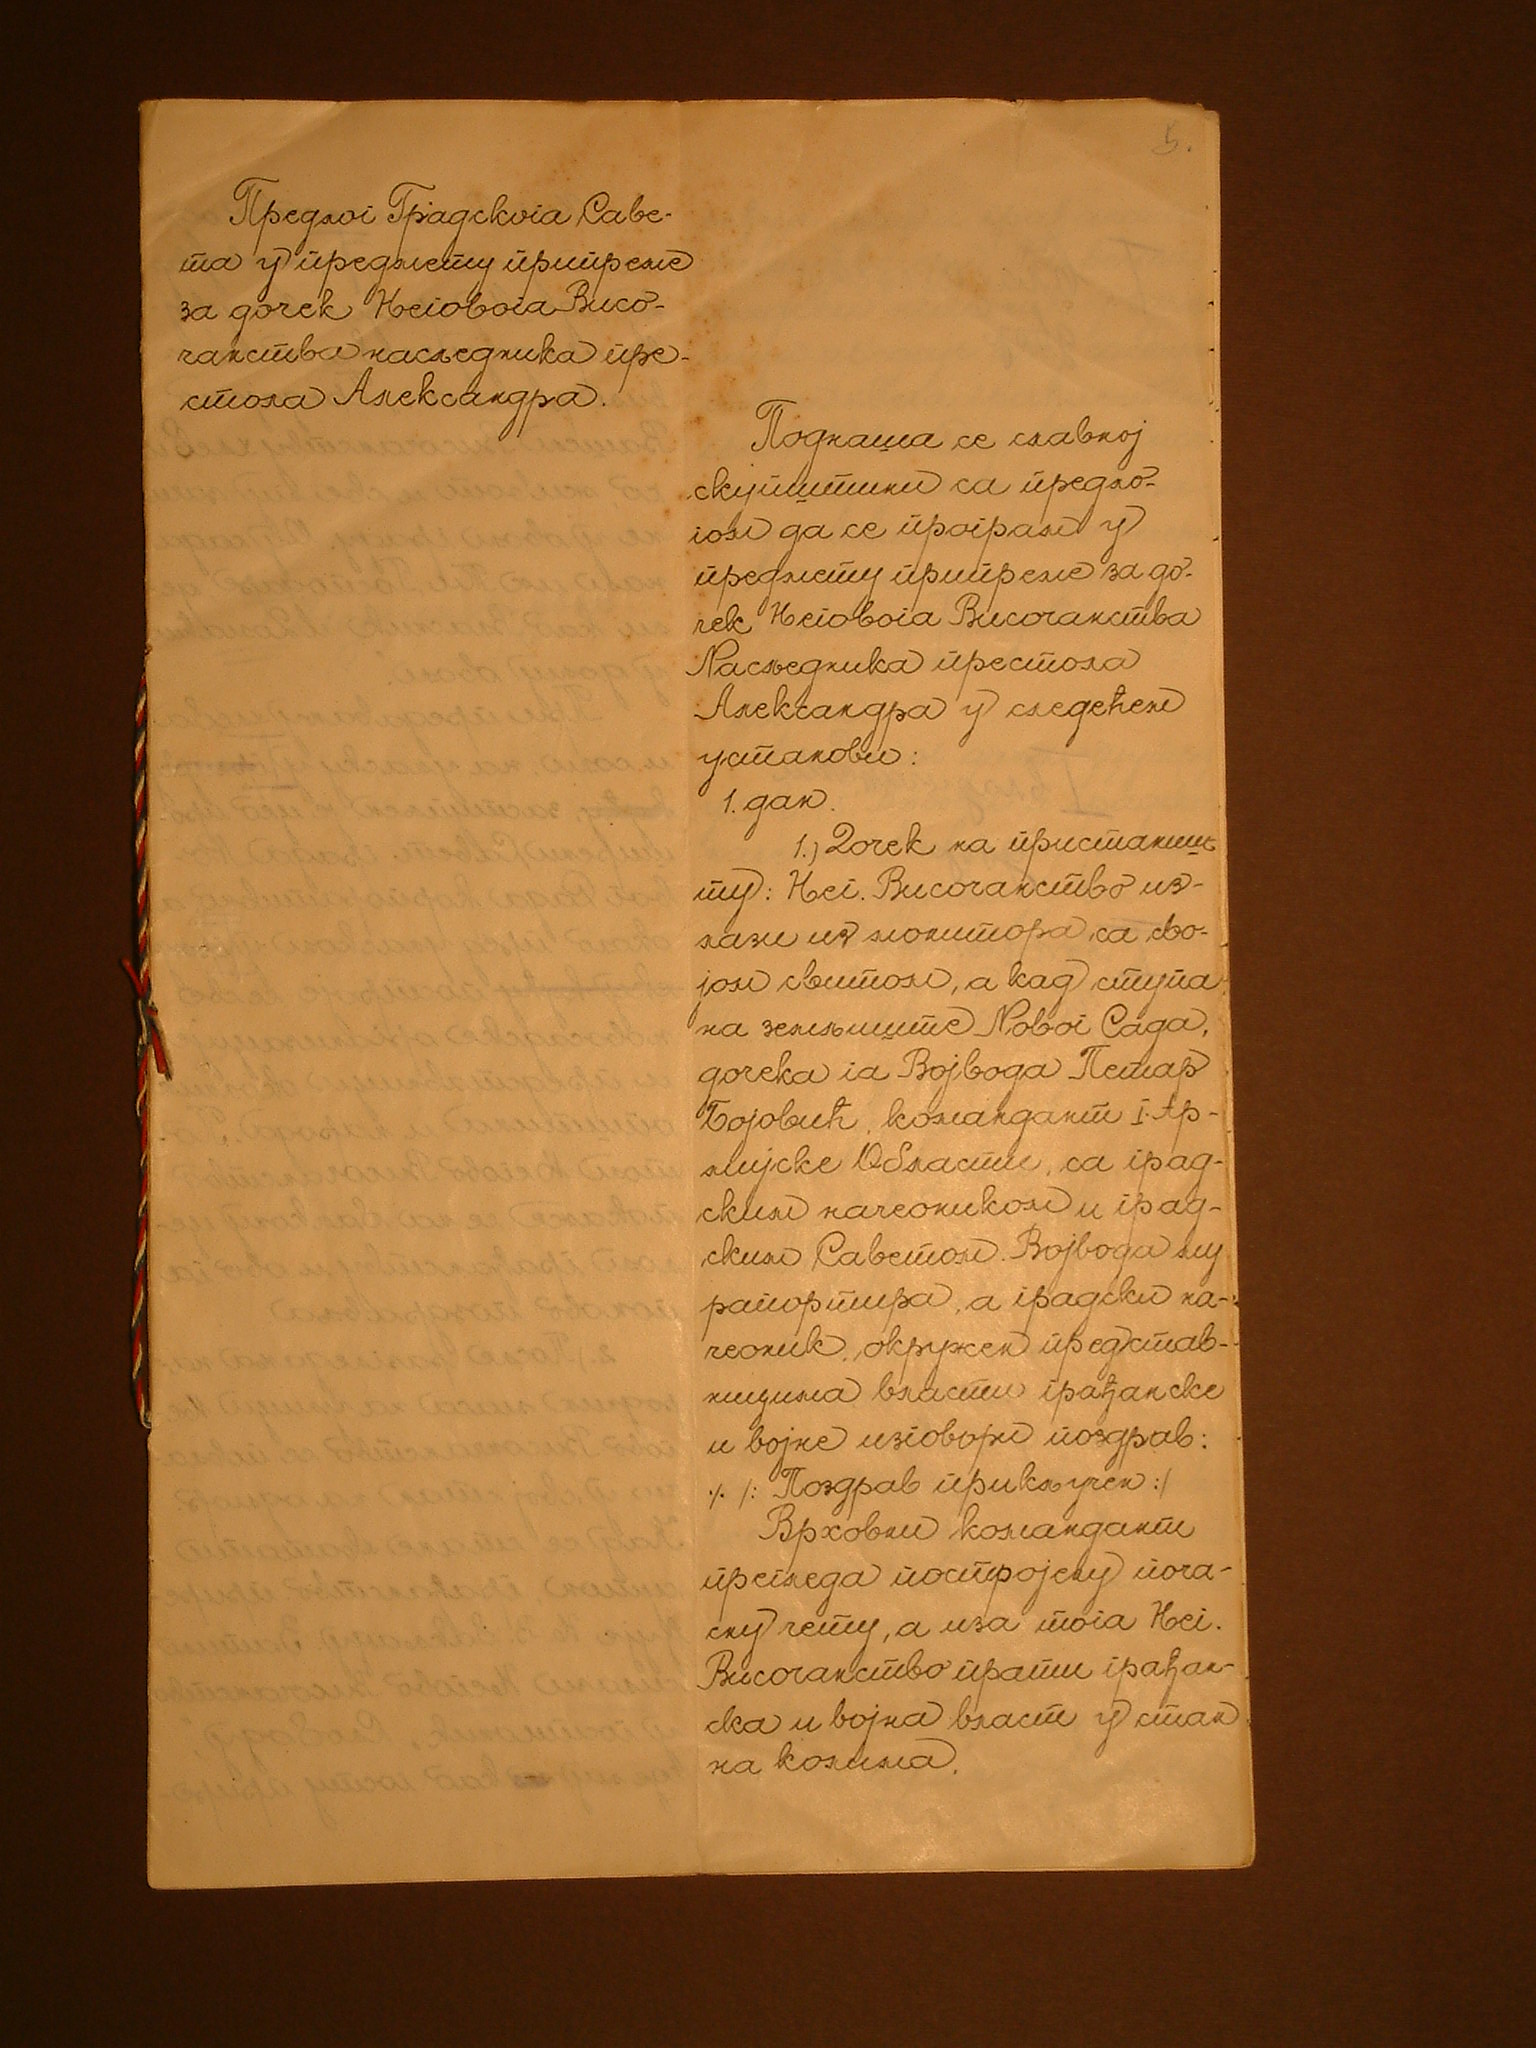 5.
Предлог Градскога Саве-
та у предмету припреме
за дочек Његовога Висо-
чанства наследника пре-
стола Александра.
Подноша се славној
скупштини са предло-
гом да се програм у
предмету припреме за до-
чек Његовога Височанства
Наследника престола
Александра у следећем
установи:
1. дан.
1.) Дочек на пристаниш-
ту: Њег. Височанство из-
лази из монитора са сво-
јом свитом, а кад ступа
на земљиште Новог Сада,
дочека га Војвода Петар
Бојовић, командант I. Ар-
мијске Области, са град-
ским начеоником и град-
ским Саветом. Војвода му
рапортира, а градски на-
чеоник, окружен представ-
ницима власти грађанске
и војне изговори поздрав:
·/. /: Поздрав прикључен :/
Врховни командант
прегледа постројену поча-
сну чету, а иза тога Њег.
Височанство прати грађан-
ска и војна власт у стан
на колима.